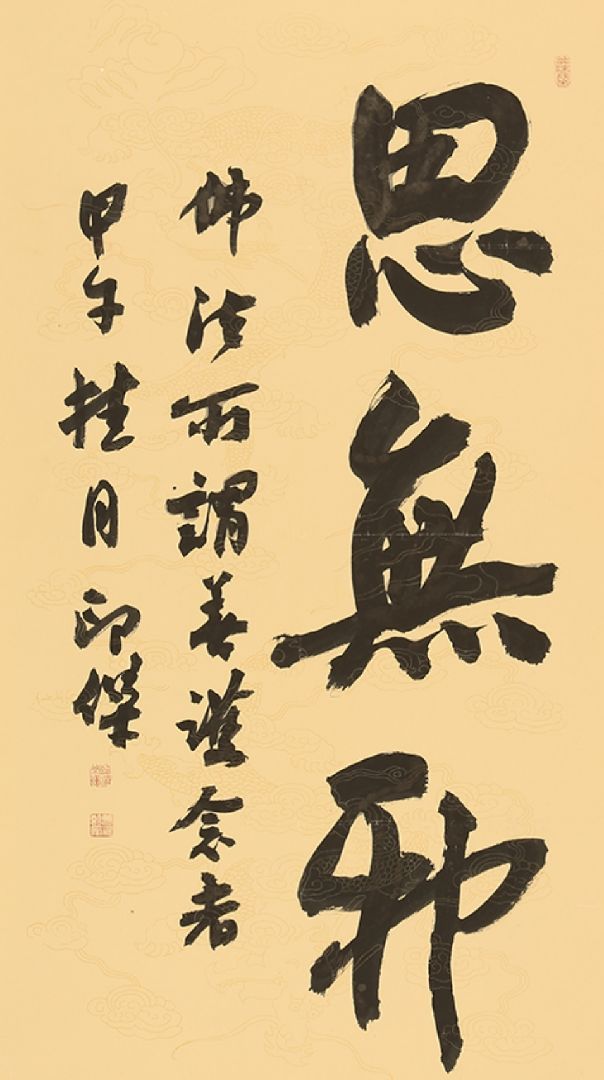 思無邪
佛法所謂善護念者
甲午桂月 印傑